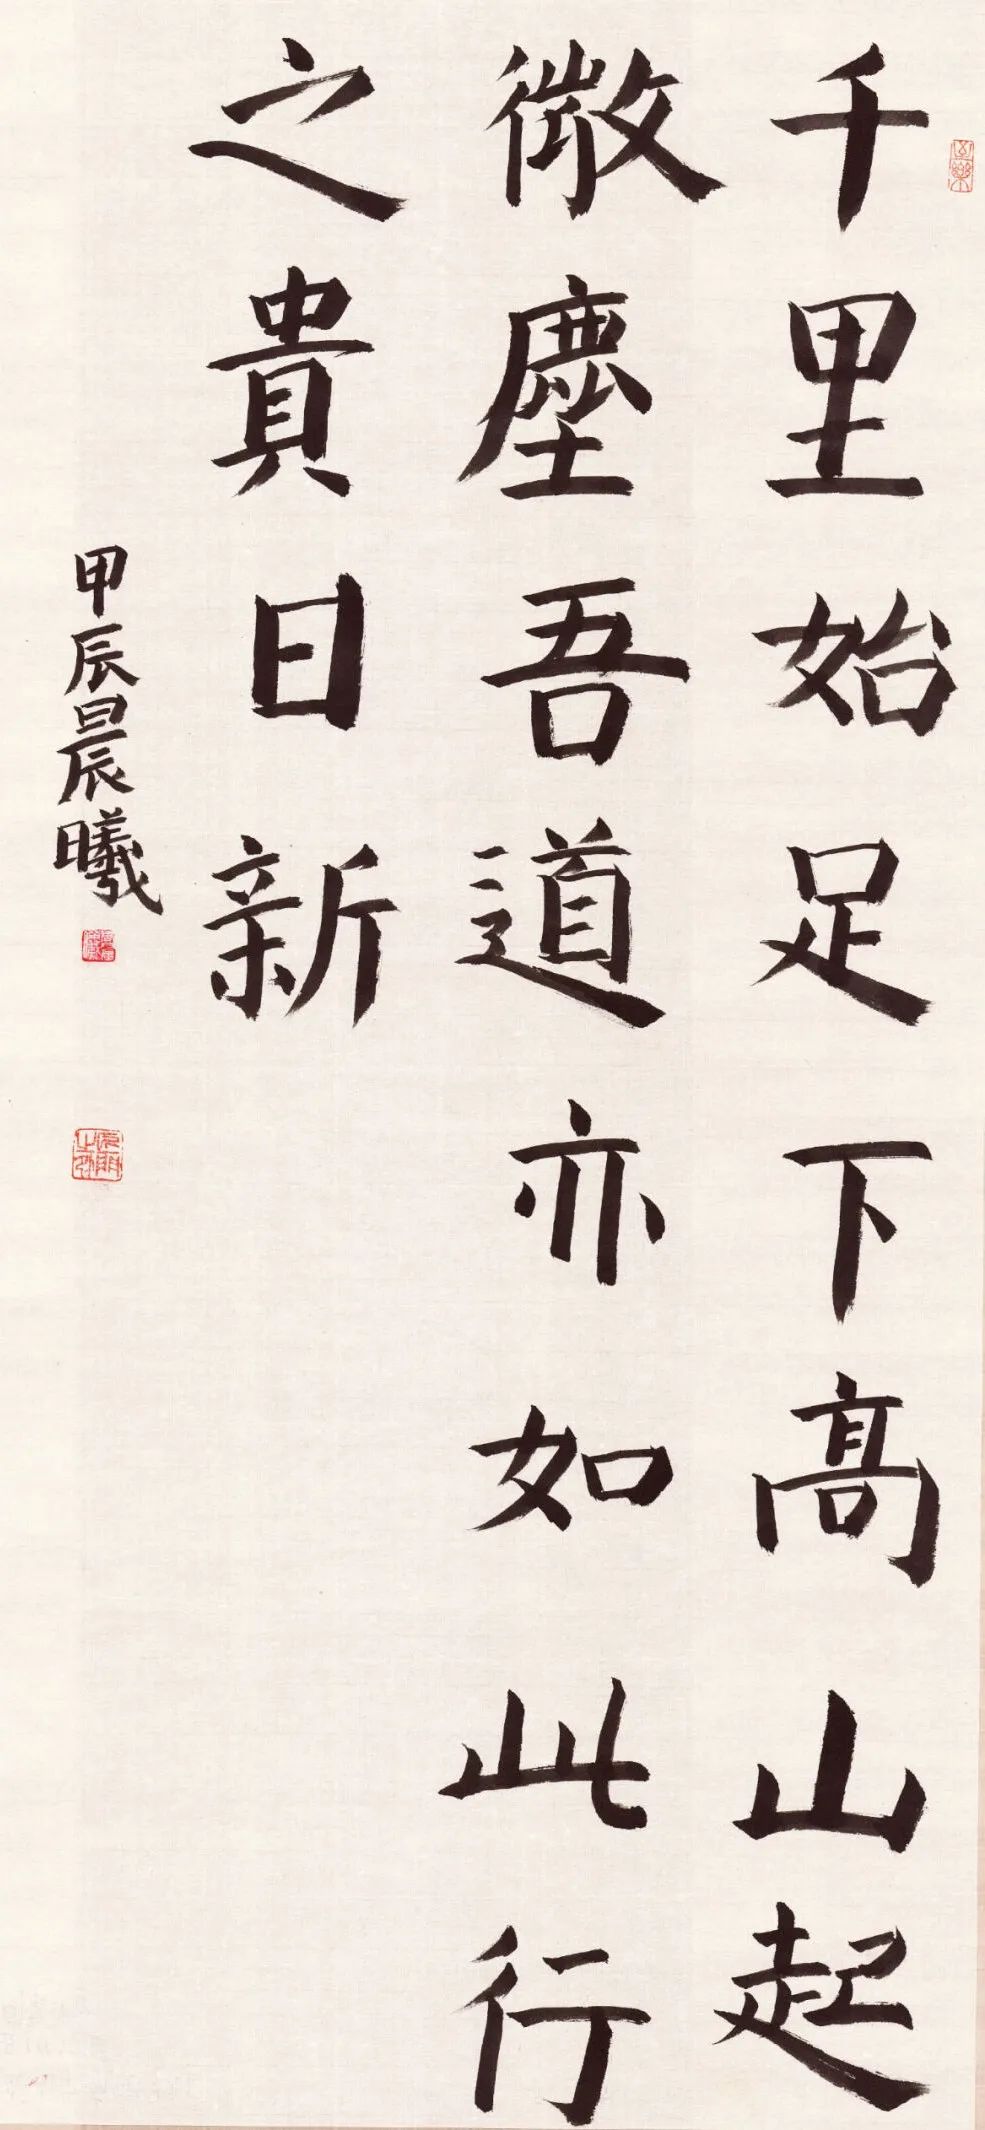 千里始足下高山起
微塵吾道亦如此行
之貴日新
甲辰晨曦